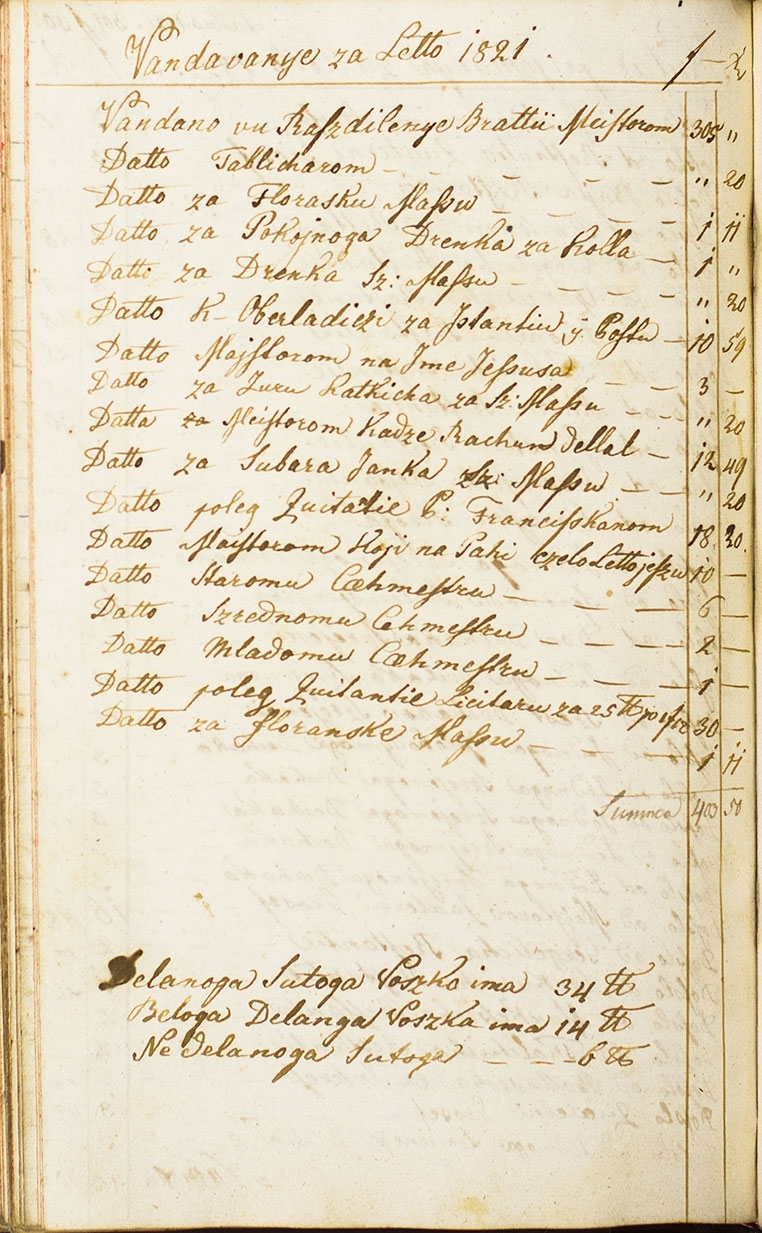 Vandavanye za Letto 1821. f — x
Vandano vu Raszdilenye Brattii Meistorom 305 "
Datto Tablicharom — — — — — " 20
Datto za Florasku Massu — — — — 1 11
Datto za Pokojnoga Drenka za Kolla — 1 "
Datto za Drenka Sz: Massu — — — — " 20
Datto K– Oberladichi za Jstantiu y Postu — 10 59
Datto Majstorom na Jme Jessusa — — — 3 —
Datto za Juru Katkicha za Sz: Massu — — — " 20
Datta za Meistorom Kadze Rachun dellal — 12 49
Datto za Subara Janka Sz: Massu — — " 20
Datto poleg Quitatie P: Francisskanom 18 20
Datto Maistorom Koji na Paki czelo Letto jeszu 10 —
Datto Staromu Cæhmestru — — — — 6 —
Datto Szrednomu Cehmestru — — — — 2 —
Datto Mladomu Cæhmestru — — — — 1 —
Datto poleg Quitantie Licitaru za 25 ℔ po 30 —
Datto za floranske Massu — — — — 1 11
Summa 403 50
Delanoga Sutoga Voszko ima 34 ℔
Beloga Delanga Voszka ima 14 ℔
Ne delanoga Sutoga — — – 6 ℔